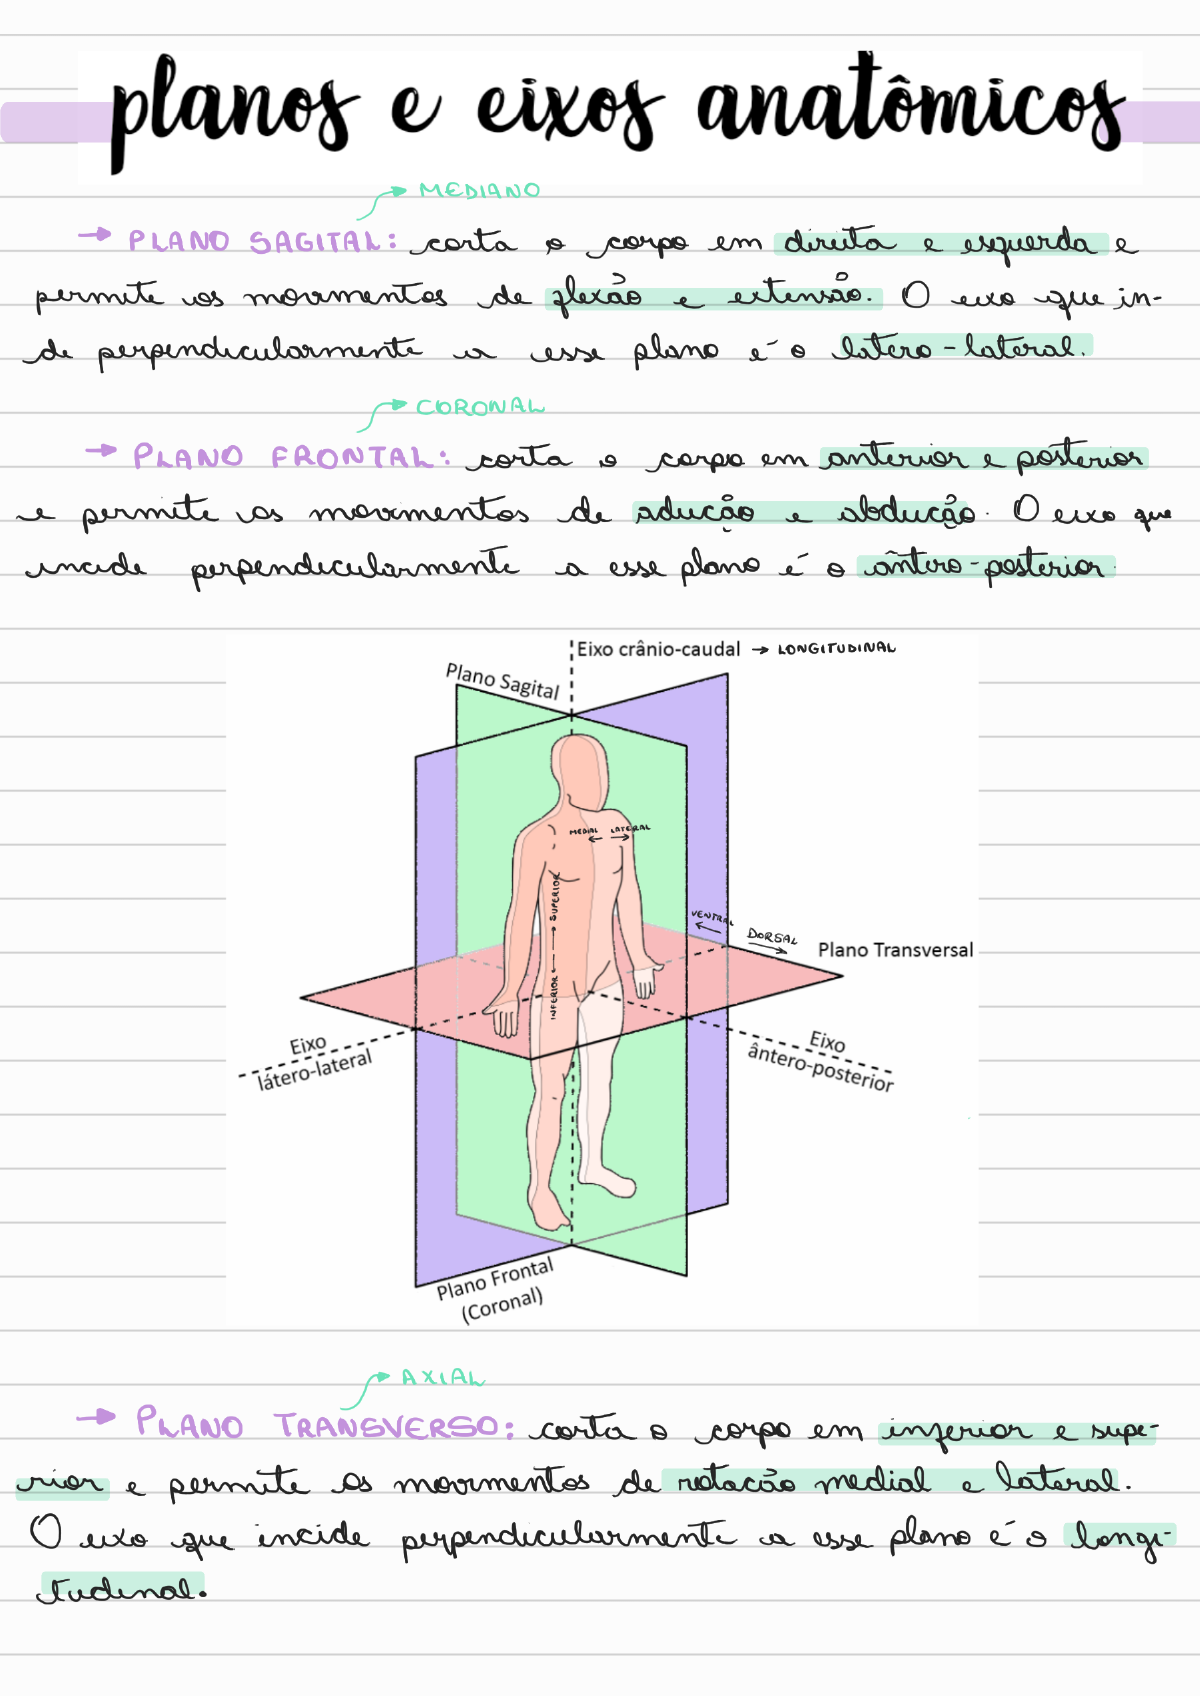 planos e eixos anatômicos
MEDIANO
→ PLANO SAGITAL: corta o corpo em direita e esquerda e
permite os movimentos de flexão e extensão. O eixo que in-
de perpendicularmente a esse plano é o latero-lateral.
CORONAL
→ PLANO FRONTAL: corta o corpo em anterior e posterior
e permite os movimentos de adução e abdução. O eixo que
incide perpendicularmente a esse plano é o ântero-posterior.
Eixo crânio-caudal → LONGITUDINAL
Plano Sagital
MEDIAL LATERAL
SUPERIOR
INFERIOR
VENTRAL
DORSAL
Plano Transversal
Eixo
látero-lateral
Eixo
ântero-posterior
Plano Frontal
(Coronal)
AXIAL
→ PLANO TRANSVERSO: corta o corpo em inferior e supe-
rior e permite os movimentos de rotacão medial e lateral.
O eixo que incide perpendicularmente a esse plano é o longi-
tudinal.